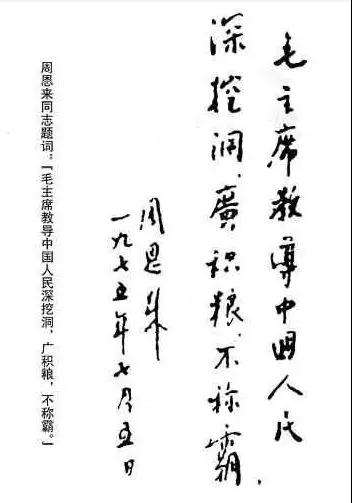 毛主席教导中国人民
深挖洞、廣积粮、不称霸.
周恩来
一九七五年七月五日
周恩来同志题词：“毛主席教导中国人民深挖洞，广积粮，不称霸。”